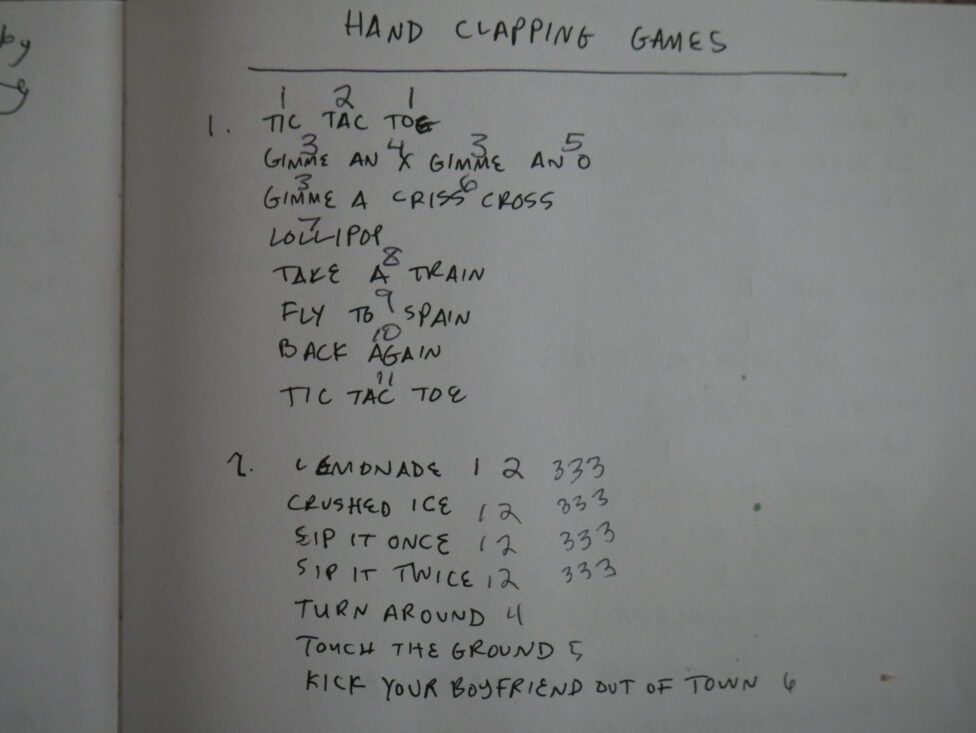 by
HAND CLAPPING GAMES
1 2 1
1. TIC TAC TOE
3 4 3 5
GIMME AN X GIMME AN O
3 6
GIMME A CRISS CROSS
7
LOLLIPOP
8
TAKE A TRAIN
9
FLY TO SPAIN
10
BACK AGAIN
11
TIC TAC TOE
2. LEMONADE 1 2 333
CRUSHED ICE 12 333
SIP IT ONCE 12 333
SIP IT TWICE 12 333
TURN AROUND 4
TOUCH THE GROUND 5
KICK YOUR BOYFRIEND OUT OF TOWN 6